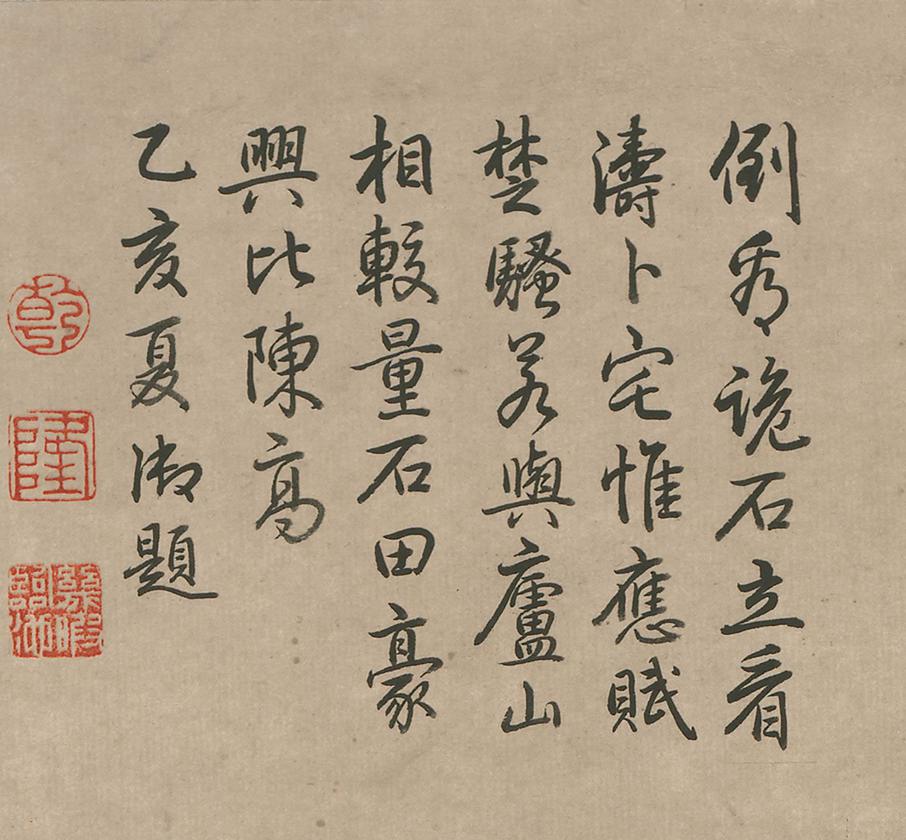 倒秀詭石立看
濤卜宅惟應賦
楚騷若與廬山
相較量石田豪
興比陳高
乙亥夏御題
乾
隆
幾暇臨池